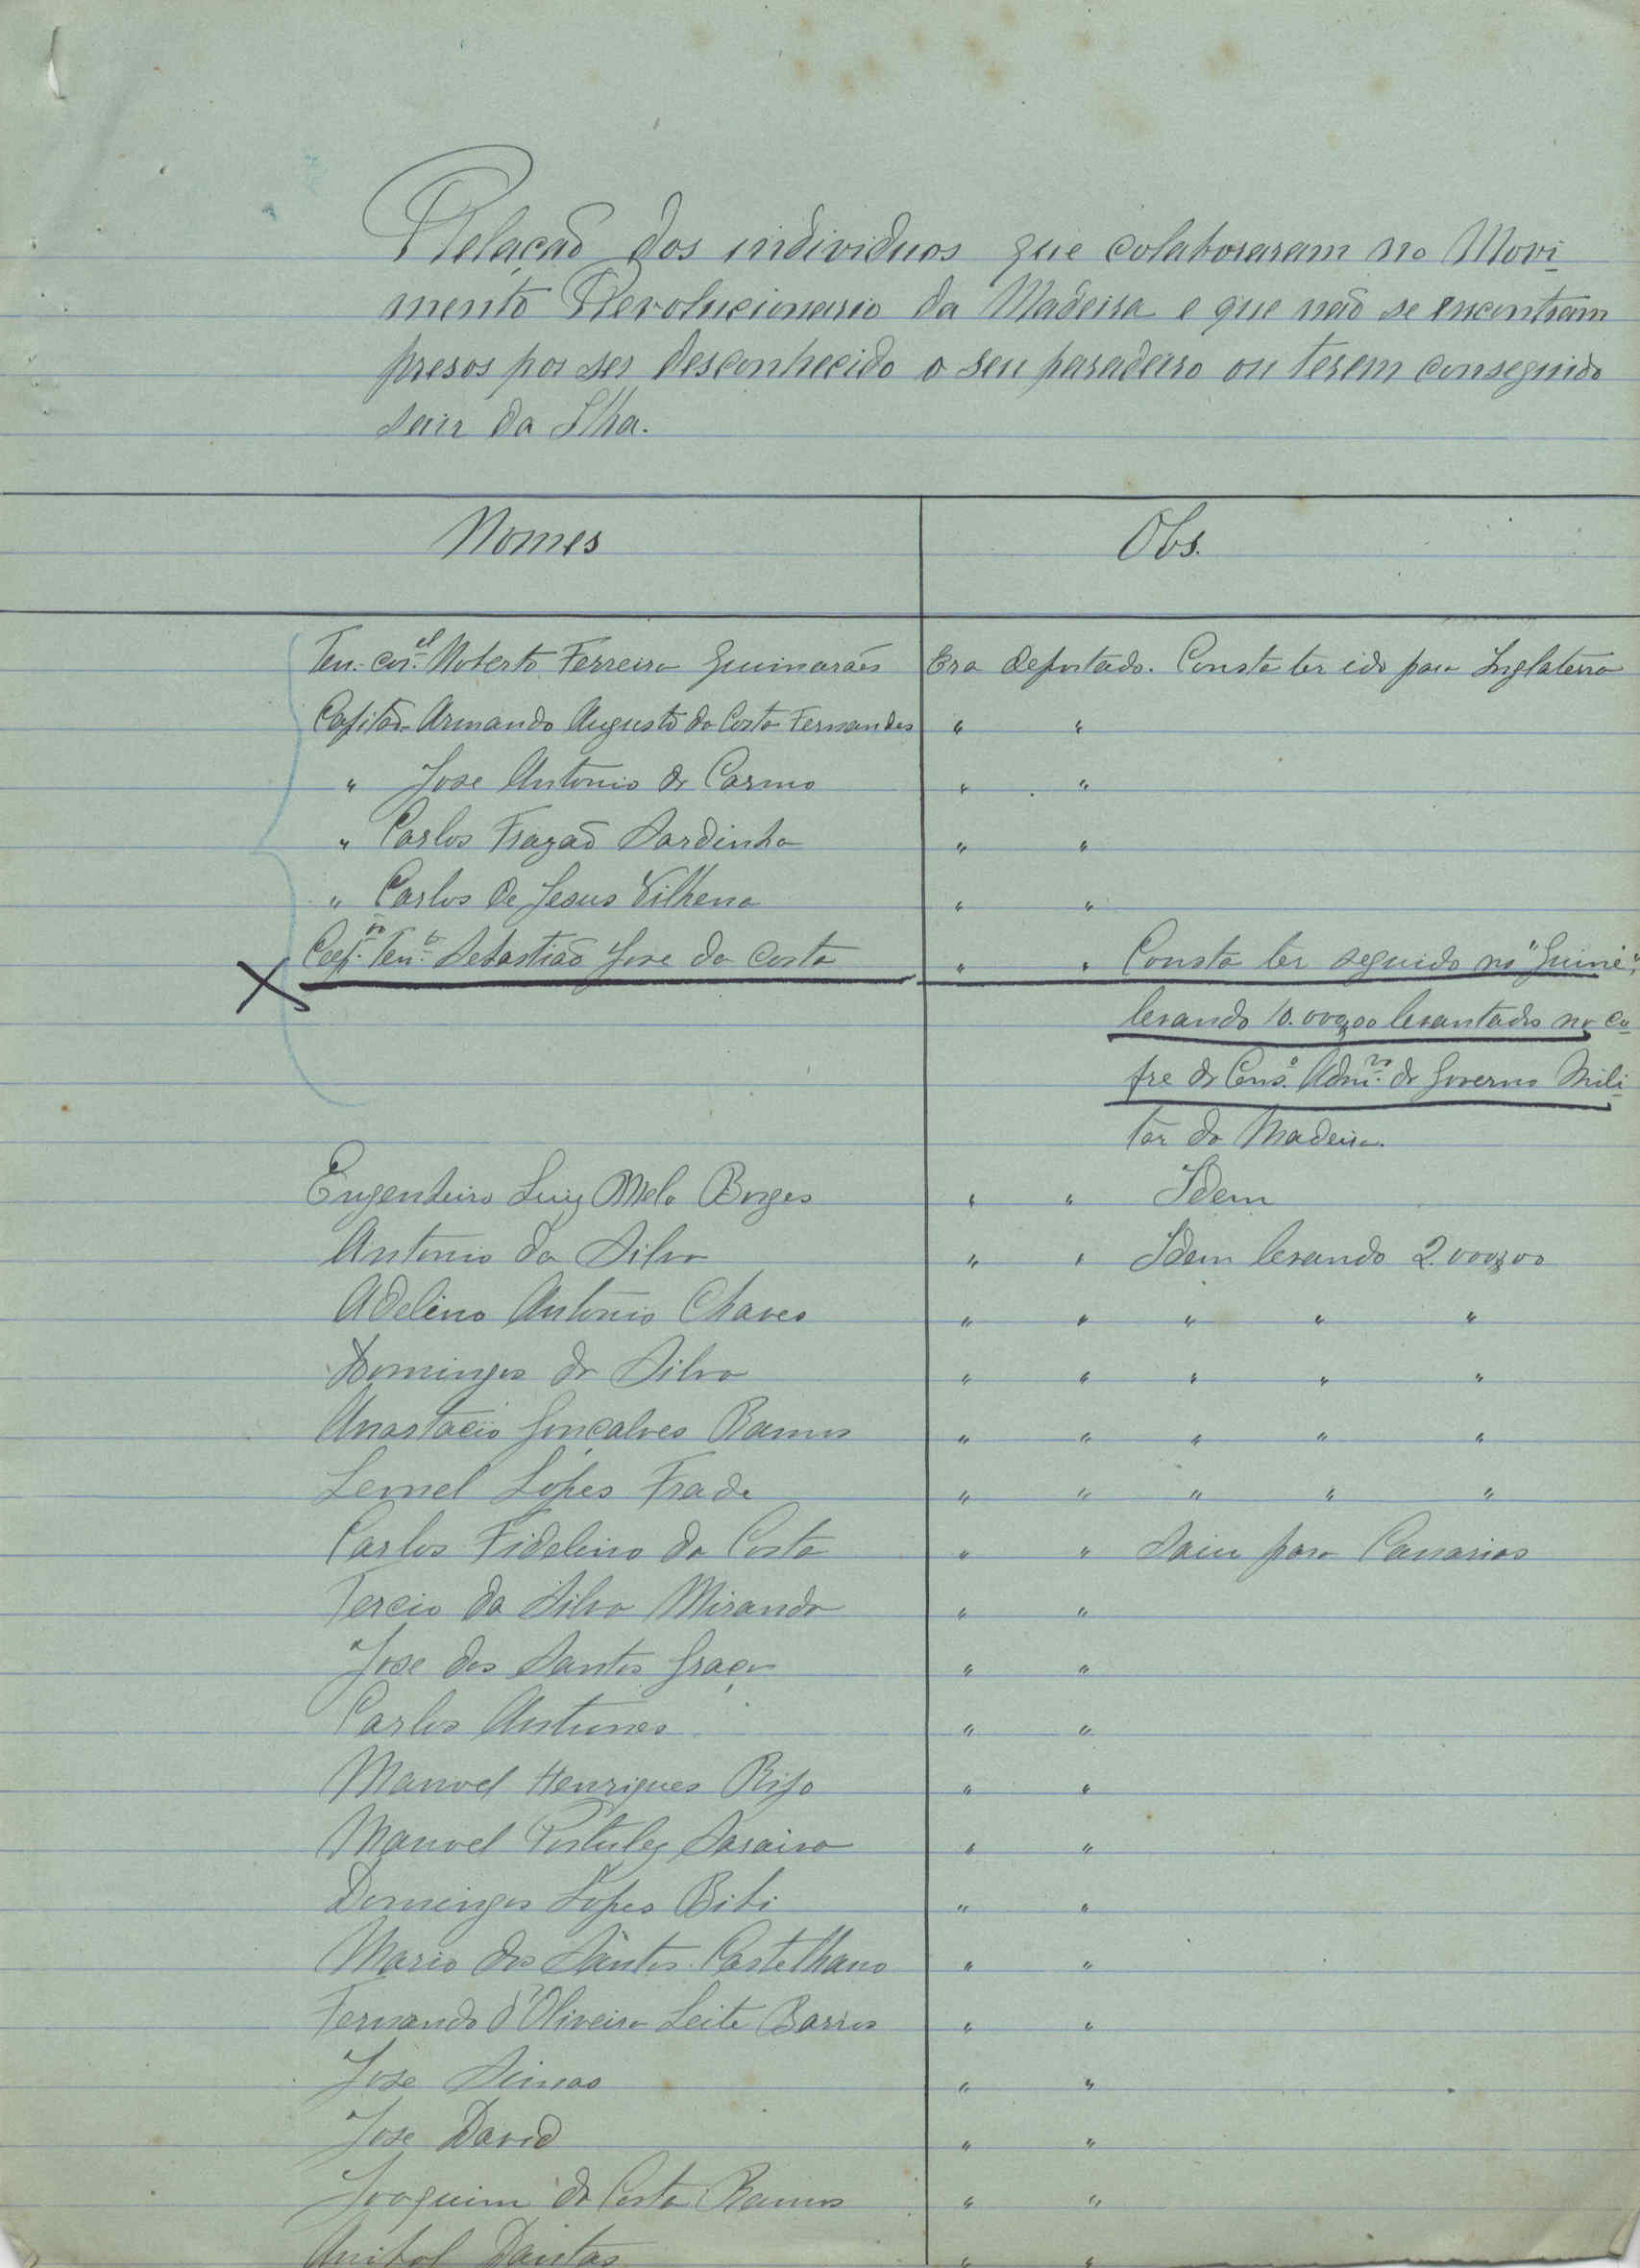 Relação dos individuos que colaboraram no Movi-
mento Revolucionario da Madeira e que não se encontram
presos por ser desconhecido o seu paradeiro ou terem conseguido
sair da Ilha.
Nomes Obs.
Ten.-cor.el Noberto Ferreira Guimarães Era deportado. Consta ter ido para Inglaterra
Capitão Armando Augusto da Costa Fernandes " "
" Jose Antonio do Carmo " "
" Carlos Frazão Sardinha " "
" Carlos de Jesus Vilhena " "
Cap.m Ten.te Sebastião Jose da Costa " " Consta ter seguido no "Guiné",
levando 10.000$00 levantados no co-
fre do Cons.o Adm.vo do Governo Mili-
tar da Madeira.
Engenheiro Luiz Melo Borges " " Idem
Antonio da Silva " " Idem levando 2.000$00
Adelino Antonio Chaves " " " " "
Domingos da Silva " " " " "
Anastacio Gonçalves Ramos " " " " "
Lemel Lopes Frade " " " " "
Carlos Fidelino da Costa " " Saiu para Canarias
Tercio da Silva Miranda " "
Jose dos Santos Graça " "
Carlos Antunes " "
Manoel Henriques Rijo " "
Manoel Saraiva " "
Domingos Lopes Bibi " "
Mario dos Santos Castelhano " "
Fernando d'Oliveira Leite Barros " "
Jose Simao " "
Jose David " "
Joaquim da Costa Ramos " "
Anibal Dantas " "